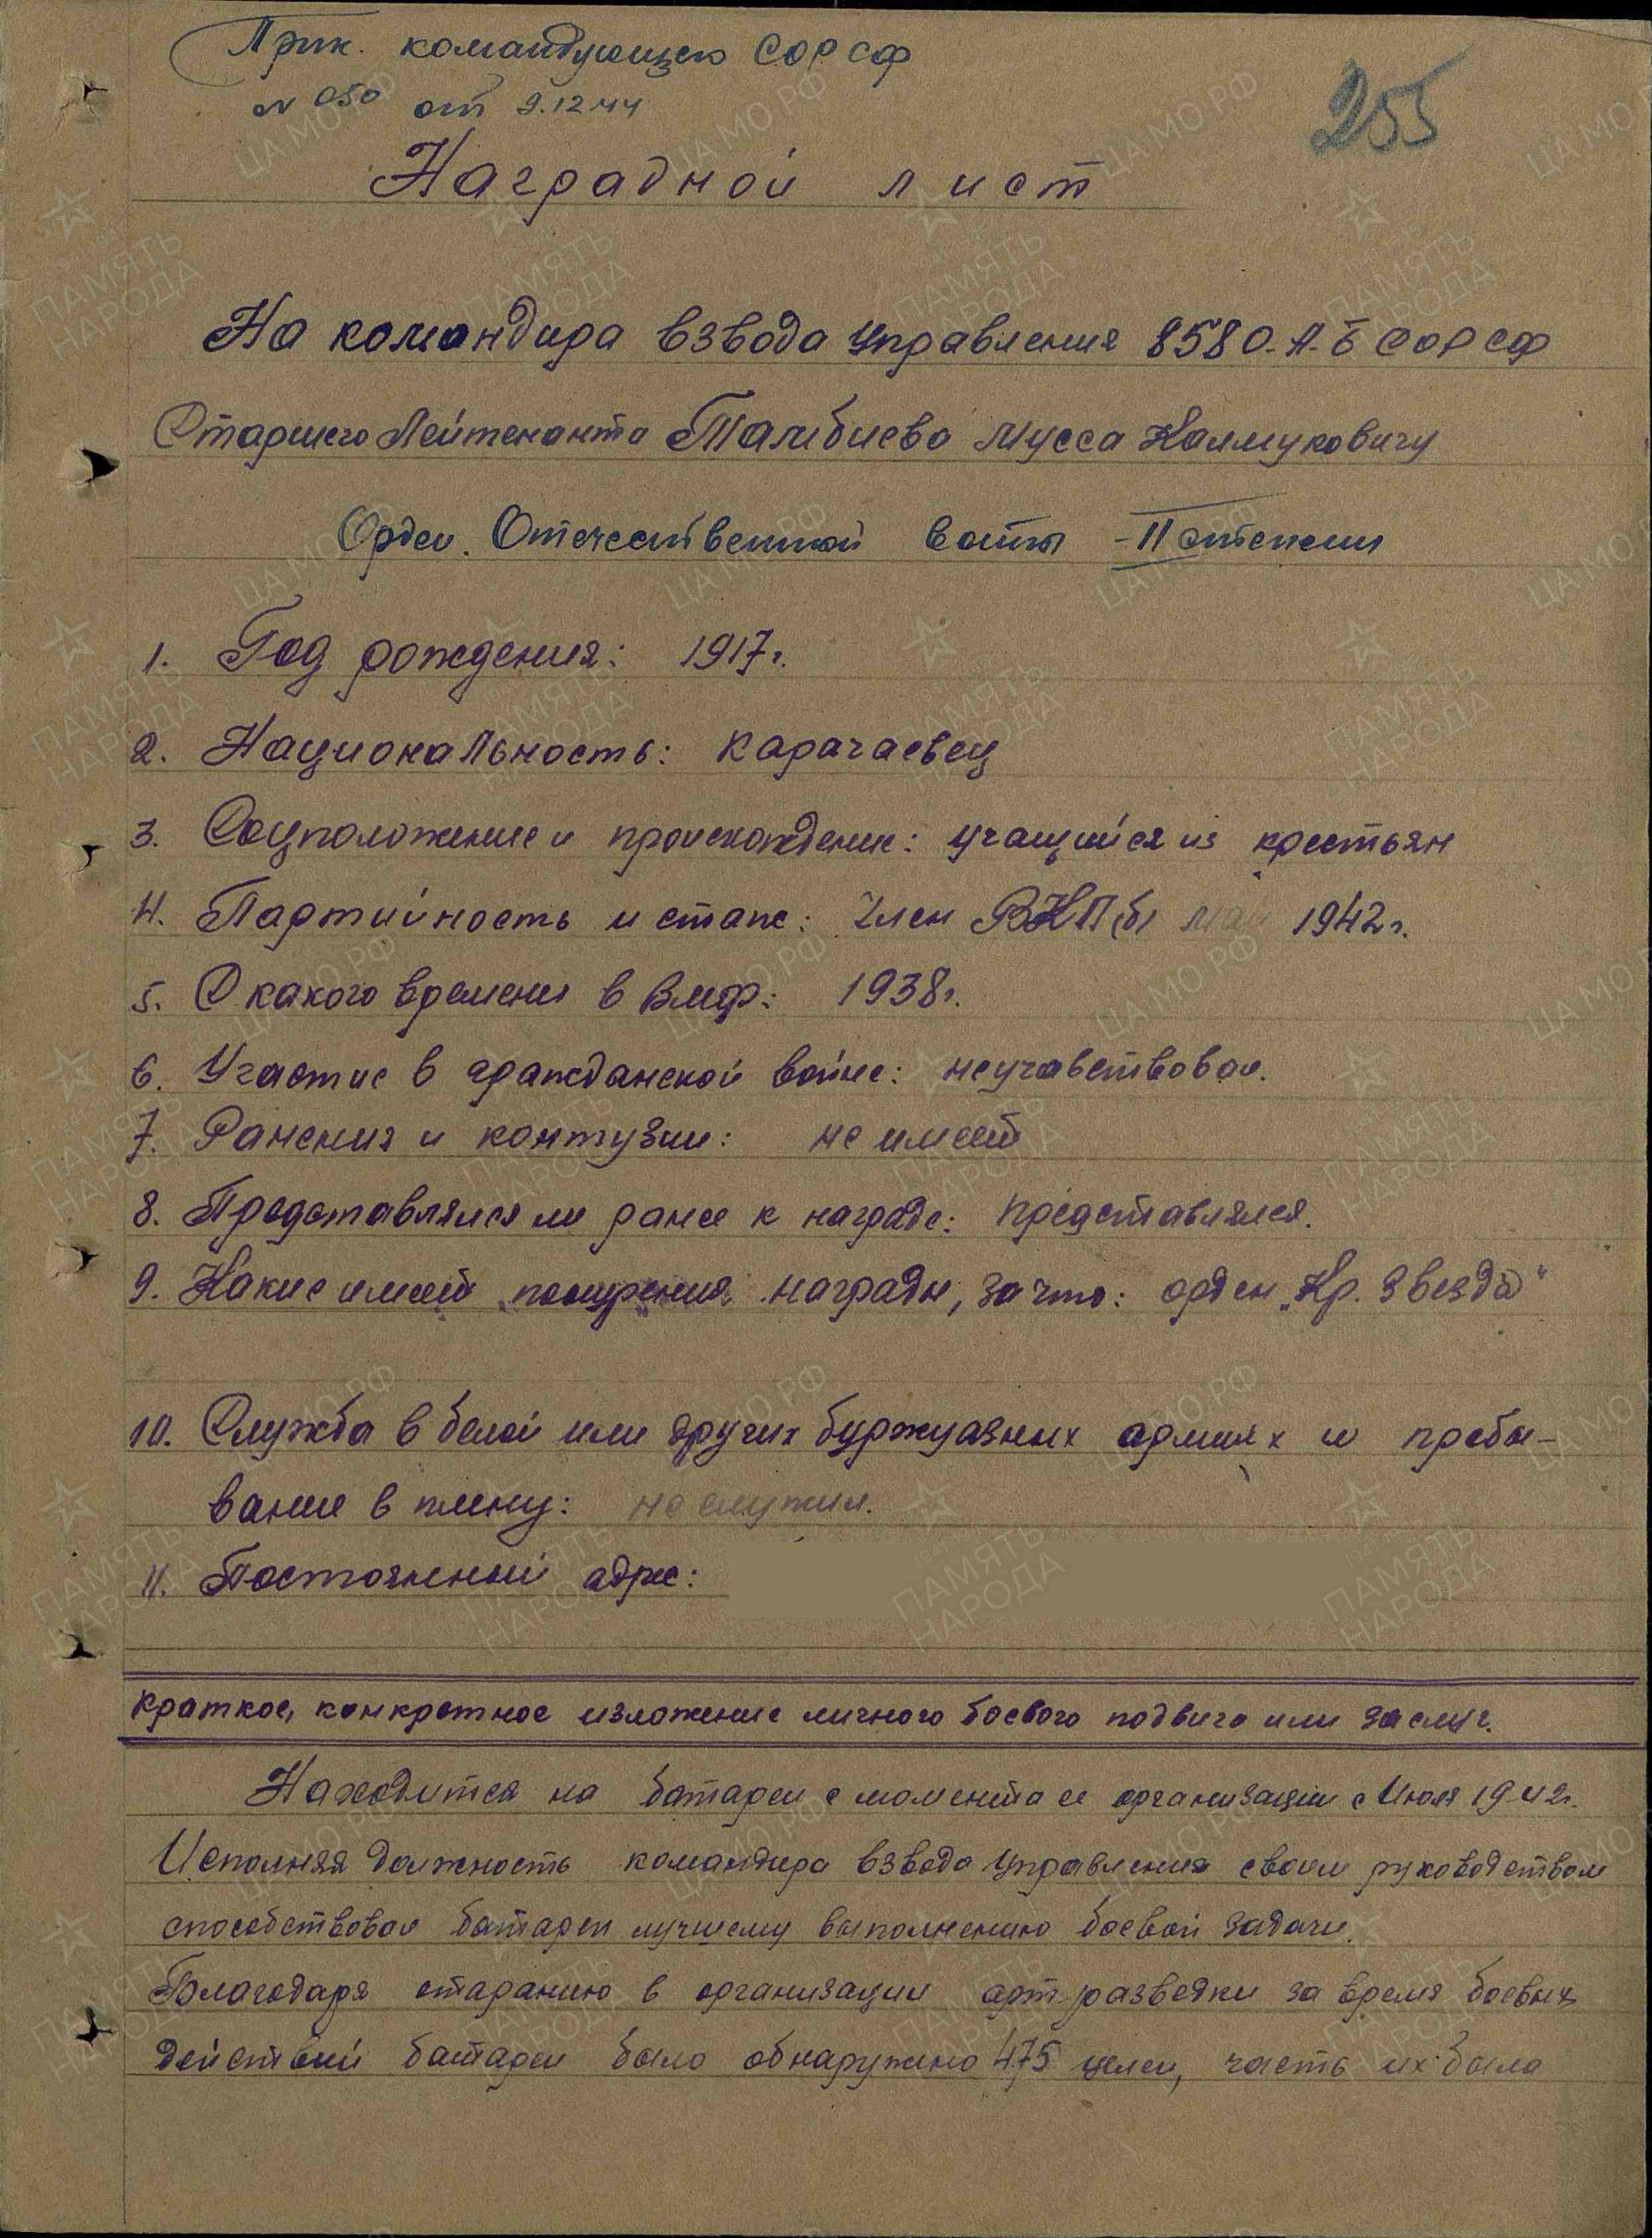 Прик. командующего СОР СФ
N 050 от 9.12.44
255
Наградной лист
На командира взвода управления 858 О.А.Б СОР СФ
Старшего Лейтенанта Тамбиева Мусса Калмуковичу
Орден. Отечественной войны - II степени
1. Год рождения: 1917г.
2. Национальность: карачаевец
3. Соцположение и происхождение: учащийся из крестьян
4. Партийность и стаж: Член ВКП(б) май 1942г.
5. С какого времени в ВМФ: 1938г.
6. Участие в гражданской войне: неучавствовал.
7. Ранения и контузии: не имеет
8. Представлялся ли ранее к награде: представлялся.
9. Какие имеет поощрения, награды, за что: орден „Кр. Звезда"
10. Служба в белой или других буржуазных армиях и пребы-
вание в плену: не служил.
11. Постоянный адрес:
Краткое, конкретное изложение личного боевого подвига или заслуг.
Находится на батареи с момента ее организации с Июля 1942г.
Исполняя должность командира взвода управления своим руководством
способствовал батареи лучшему выполнению боевой задачи.
Благодаря старанию в организации арт. разведки за время боевых
действий батареи было обнаружено 475 целей, часть их была
ЦА МО РФ
ПАМЯТЬ НАРОДА